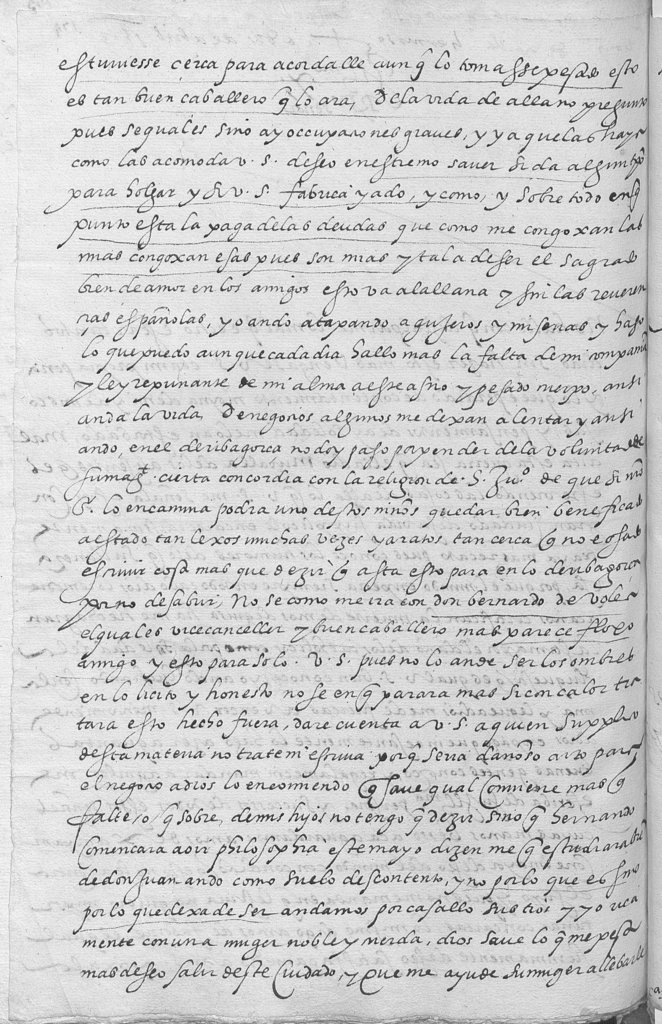 estuviesse cerca para acordalle aunq̃ lo tomasse pesado esto
es tan buen caballero q̃ lo ara, De la vida de alla no pregunto
pues se qual es sino ay occupaciones graves, y ya que las haya
como las acomoda v. s. deseo en estremo saver si da algun tp̃o
para holgar y si v. s. fabrica yado, y como, y sobre todo en q̃
punto esta la paga de las deudas que como me congoxan las
mias congoxan esas pues son mias y tal a de ser el sagrado
bien de amor en los amigos esto va a la llana y sin las reveren
cias españolas, yo ando atapando agujeros y miserias y hago
lo que puedo aunque cada dia hallo mas la falta de mi compañia
y ley repunante de mi alma a este asno y pesado cuerpo, ansi
anda la vida De negocios algunos me dexan alentar y ansi
ando, en el de ribagorca no doy paso por pender de la voluntad de
su mag.t cierta concordia con la religion de S. Juº de que si nrõ
S. lo encamina podra uno destos niños quedar bien beneficiado
a estado tan lexos muchas vezes y a ratos tan cerca q̃ no e osado
escrivir cosa mas que dezir q̃ asta esto para en lo de ribagorca
por no desabrir, No se como me ira con don bernardo de
el qual es vicecanceller y buen caballero mas parece floxo
amigo y esto para solo. v. s. pues no lo an de ser los ombres
en lo licito y honesto no se en q̃ parara mas si con calor tra
tara esto hecho fuera, dare cuenta a v. s. a quien supplico
desta materia no trate ni escriva porq̃ seria dañoso arto para
el negocio a dios lo encomiendo q̃ save qual comviene mas q̃
falte o q̃ sobre, de mis hijos no tengo q̃ dezir sino q̃ hernando
Comencara a oir philosophia este mayo dizen me q̃ estudiara bien
de don Juan ando como suelo descontento, y no por lo que es sino
por lo que dexa de ser andamos por casallo sus tios y yo rica
mente con una muger noble y cuerda, dios save lo q̃ me pesa
mas deseo salir deste Cuidado, y que me ayude su muger a llebarle